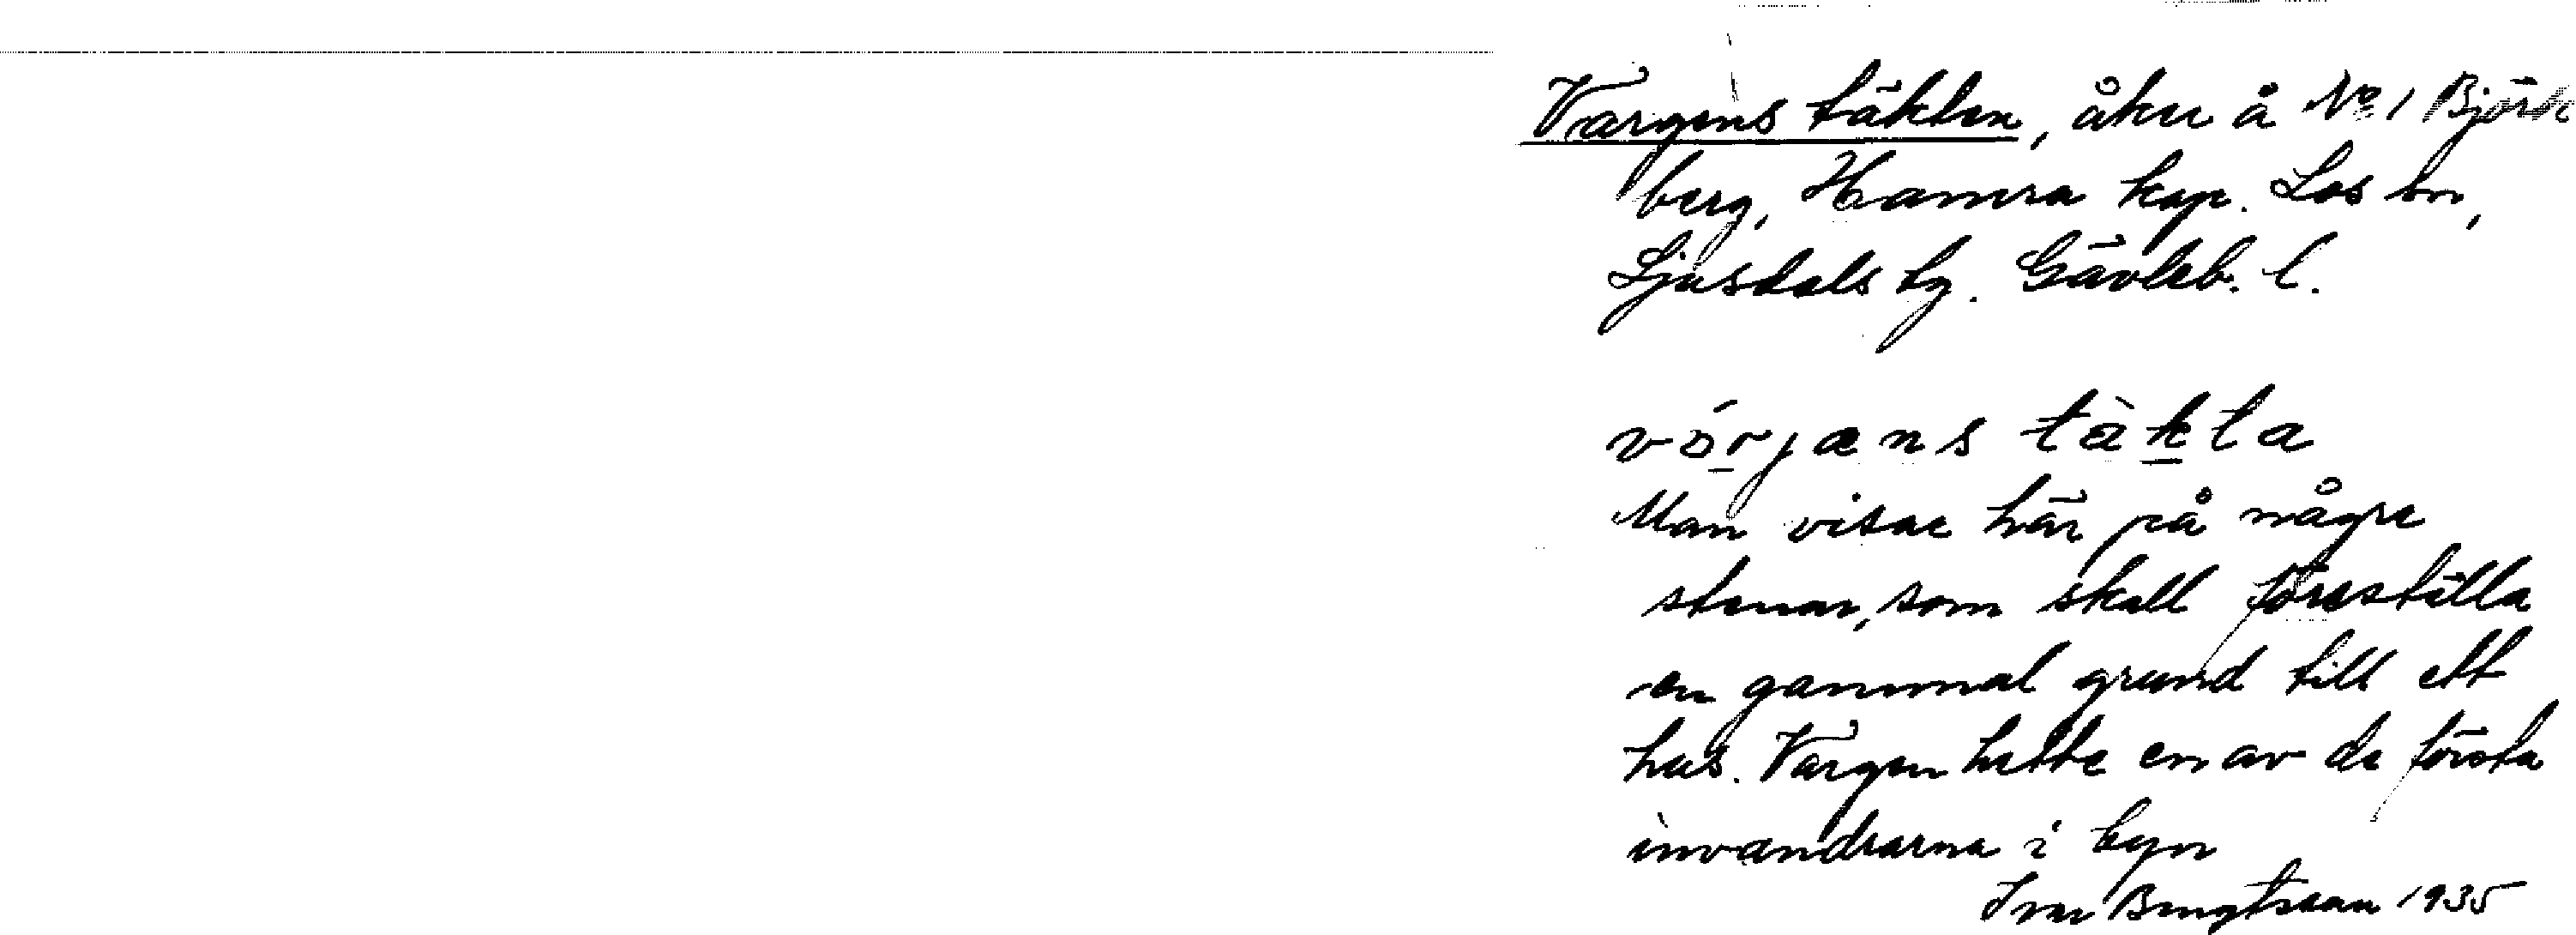 Vargens täkten, åker å No 1 Björk
berg, Hamra kap. Los sn,
Ljusdals tg. Gävleb. l.
vórjæns tàkta
Man visar här på några
stenar, som skall föreställa
en gammal grund till ett
hus. Vargen hette en av de första
invandrarna i byn
Ivar Bengtsson 1935